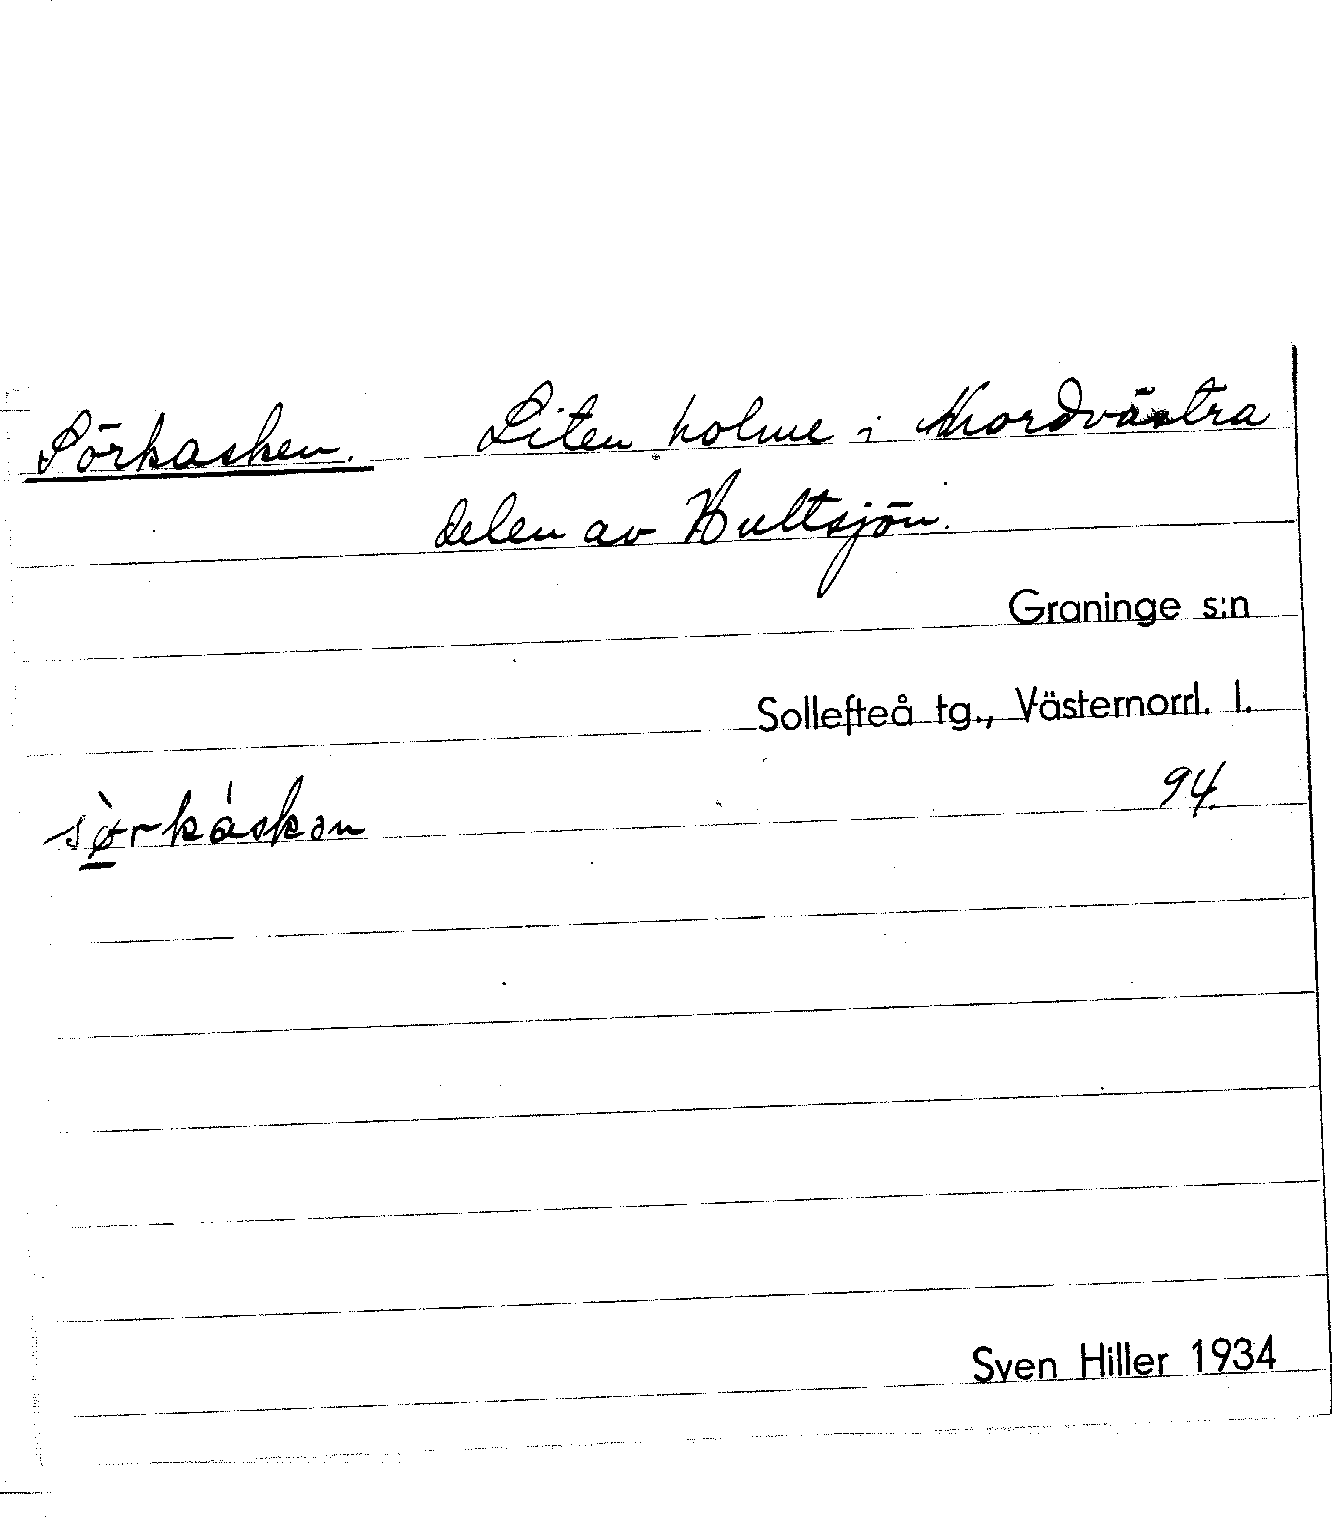 Sörkasken. Liten holme i Nordvästra
delen av Hultsjön.
Graninge s:n
Sollefteå tg., Västernorrl. l.
94.
Sven Hiller 1934